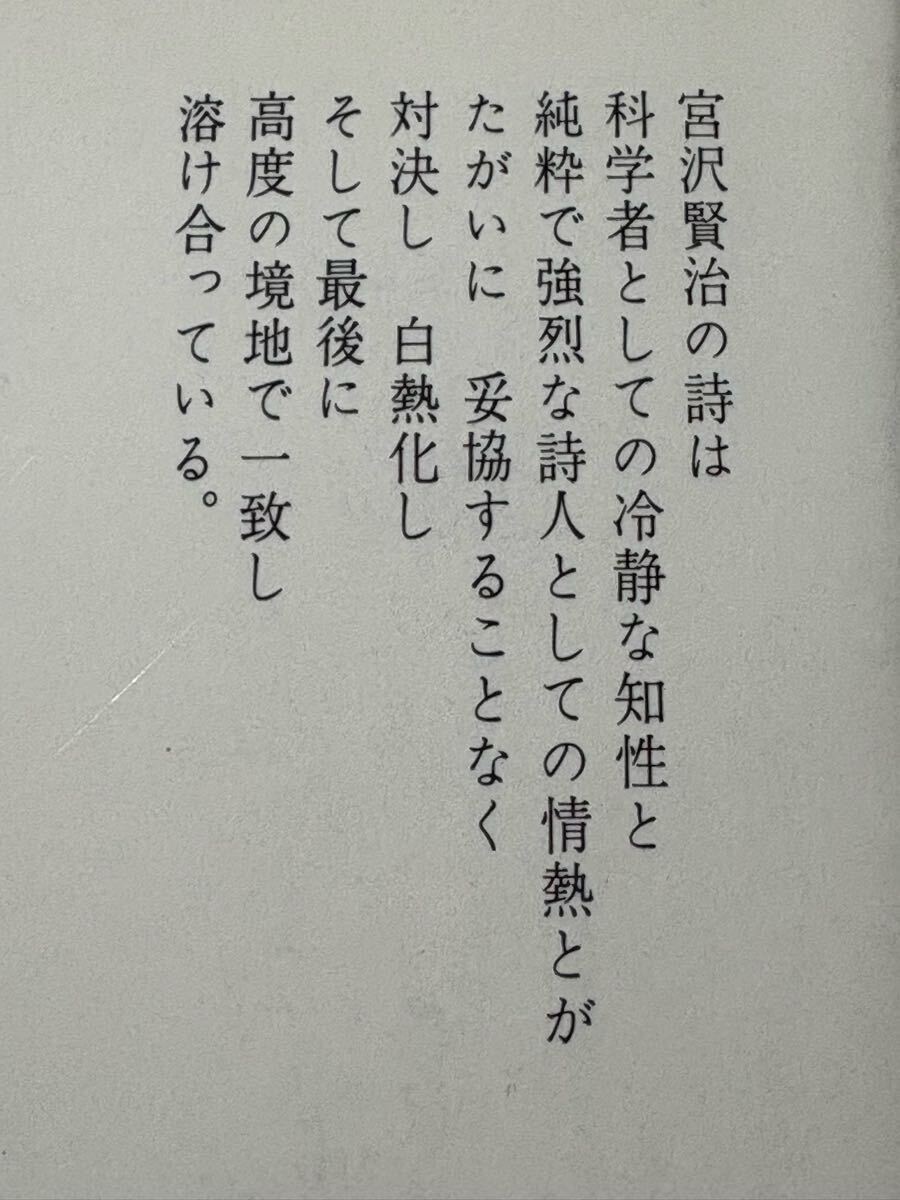 宮沢賢治の詩は
科学者としての冷静な知性と
純粋で強烈な詩人としての情熱とが
たがいに　妥協することなく
対決し　白熱化し
そして最後に
高度の境地で一致し
溶け合っている。